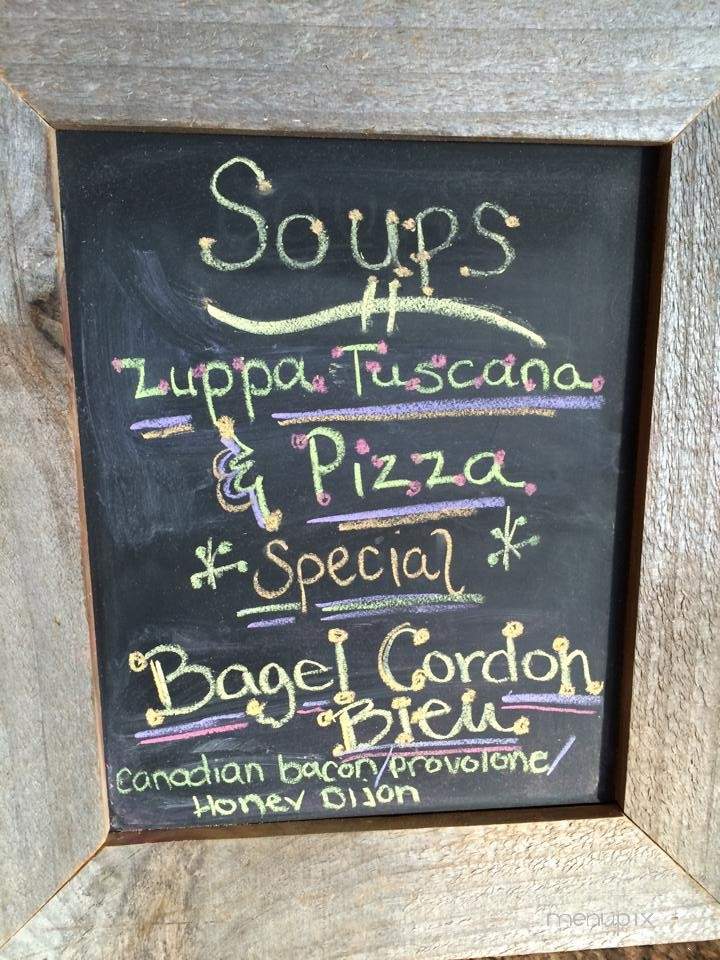 Soups
Zuppa Tuscana
& Pizza
* Special *
Bagel Cordon
Bleu
Canadian bacon/provolone/
Honey Dijon
menupix